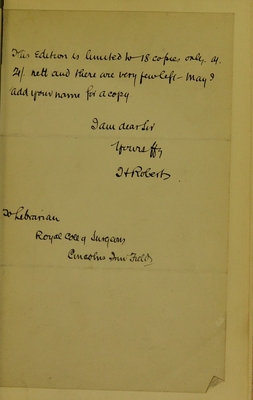 This Edition is limited to 18 copies only. at
21/. nett and there are very few left - May I
add your name for a copy
I am dear Sir
Yours ffy
J H Roberts
To Lebrarian
Royal Coll of Surgeons
Lincolns Inn Fields